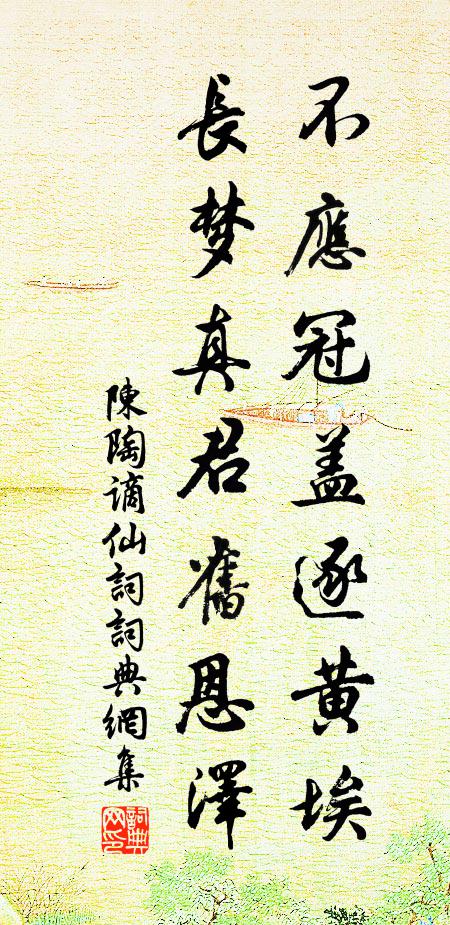 不應冠盖逐黄埃
長梦真君舊恩澤
陳陶謫仙詞詞典網集
詞典網印